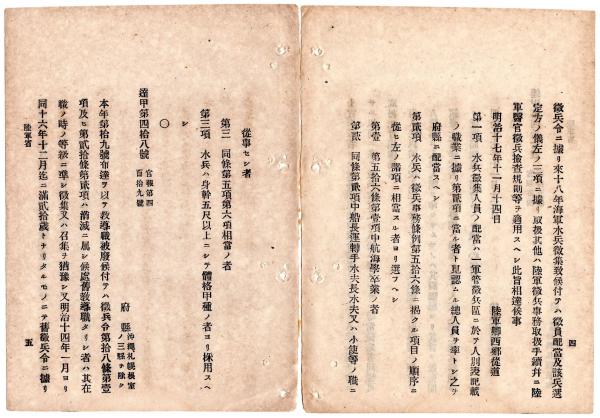 四
徵兵令ニ據リ來十八年海軍水兵徵集致候付テハ徵員配當及該兵選
定方ノ儀左ノ三項ニ據リ取扱其他ハ陸軍徵兵事務取扱手續幷ニ陸
軍醫官徵兵撿査規則等ヲ適用スヘシ此旨相達候事
明治十七年十一月十四日　陸軍卿西鄕從道
第一項　水兵徵集人員ノ配當ハ一軍管徵兵區ニ於テ人別表記載
ノ職業ニ據リ第貳項ニ當ル者ト見認ムル總人員ヲ率トシ之ヲ
府縣ニ配當スヘシ
第貳項　水兵ハ徵兵事務條例第五拾六條ニ揭クル項目ノ順序ニ
從ヒ左ノ諸項ニ相當スル者ヨリ選フヘシ
第壹　第五拾六條第壹項中航海學卒業ノ者
第貳　同條第貳項中船長運轉手水夫長水夫又ハ小使等ノ職ニ
從事セシ者
第三　同條第五項第六項相當ノ者
第三項　水兵ハ身幹五尺以上ニシテ體格甲種ノ者ヨリ採用スヘ
シ
○
達甲第四拾八號　官報第四百拾九號
府縣　沖繩札幌根室ノ三縣ヲ除ク
本年第拾九號布達ヲ以テ敎導職被廢候付テハ徵兵令第拾八條第壹
項及ヒ第貳拾條第貳項ハ消滅ニ屬シ候處舊敎導職タリシ者ハ其在
職ノ時ノ等級ニ準シ徵集又ハ召集ヲ猶豫シ又明治十四年一月ヨリ
同十六年十二月迄ニ滿貳拾歲トナリタルモノニテ舊徵兵令ニ據リ
陸軍省
五